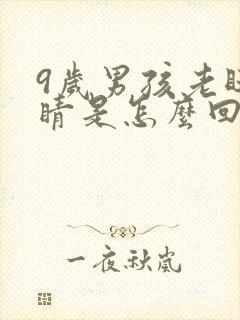 9歲男孩老眨
睛是怎麼回
一夜秋嵐